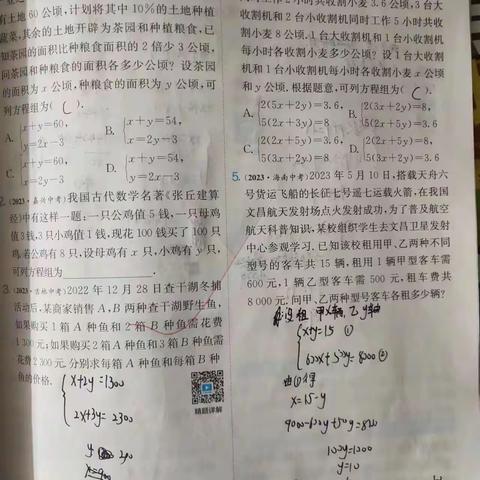 有土地 60 公顷,计划将其中 10% 的土地种植
蔬菜,其余的土地开辟为茶园和种植粮食,已
知茶园的面积比种粮食的面积的 2 倍少 3 公顷,
问茶园和种粮食的面积各多少公顷?设茶园
的面积为 x 公顷,种粮食的面积为 y 公顷,可
列方程组为( C ).
A. {x+y=60, y=2x-3
B. {x+y=54, x=2y-3
C. {x+y=60, x=2y-3
D. {x+y=54, y=2x-3
2. (2023·嘉兴中考)我国古代数学名著《张丘建算
经》中有这样一题:一只公鸡值 5 钱,一只母鸡
值 3 钱,3 只小鸡值 1 钱,现花 100 钱买了 100 只
鸡.若公鸡有 8 只,设母鸡有 x 只,小鸡有 y 只,
可列方程组为
3. (2023·吉林中考)2022 年 12 月 28 日查干湖冬捕
活动后,某商家销售 A,B 两种查干湖野生鱼,
如果购买 1 箱 A 种鱼和 2 箱 B 种鱼需花费
1 300 元;如果购买 2 箱 A 种鱼和 3 箱 B 种鱼需
花费 2 300 元.分别求每箱 A 种鱼和每箱 B 种
鱼的价格.
{x+2y=1300
2x+3y=2300
x=900
精题详解
工作 2 小时共收割小麦 3.6 公顷,3 台大
收割机和 2 台小收割机同时工作 5 小时共收
割小麦 8 公顷.1 台大收割机和 1 台小收割机
每小时各收割小麦多少公顷?设 1 台大收割
机和 1 台小收割机每小时各收割小麦 x 公顷
和 y 公顷.根据题意,可列方程组为( C ).
A. {2(5x+2y)=3.6, 5(2x+3y)=8
B. {2(3x+2y)=8, 5(2x+5y)=3.6
C. {2(2x+5y)=3.6, 5(3x+2y)=8
D. {2(2x+5y)=8, 5(3x+2y)=3.6
5. (2023·海南中考)2023 年 5 月 10 日,搭载天舟六
号货运飞船的长征七号遥七运载火箭,在我国
文昌航天发射场点火发射成功,为了普及航空
航天科普知识,某校组织学生去文昌卫星发射
中心参观学习.已知该校租用甲、乙两种不同
型号的客车共 15 辆,租用 1 辆甲型客车需
600 元,1 辆乙型客车需 500 元,租车费共
8 000 元.问甲、乙两种型号客车各租多少辆?
{x+y=15 ①
600x+500y=8000 ②
由①得
x=15-y
100y=1000
y=10